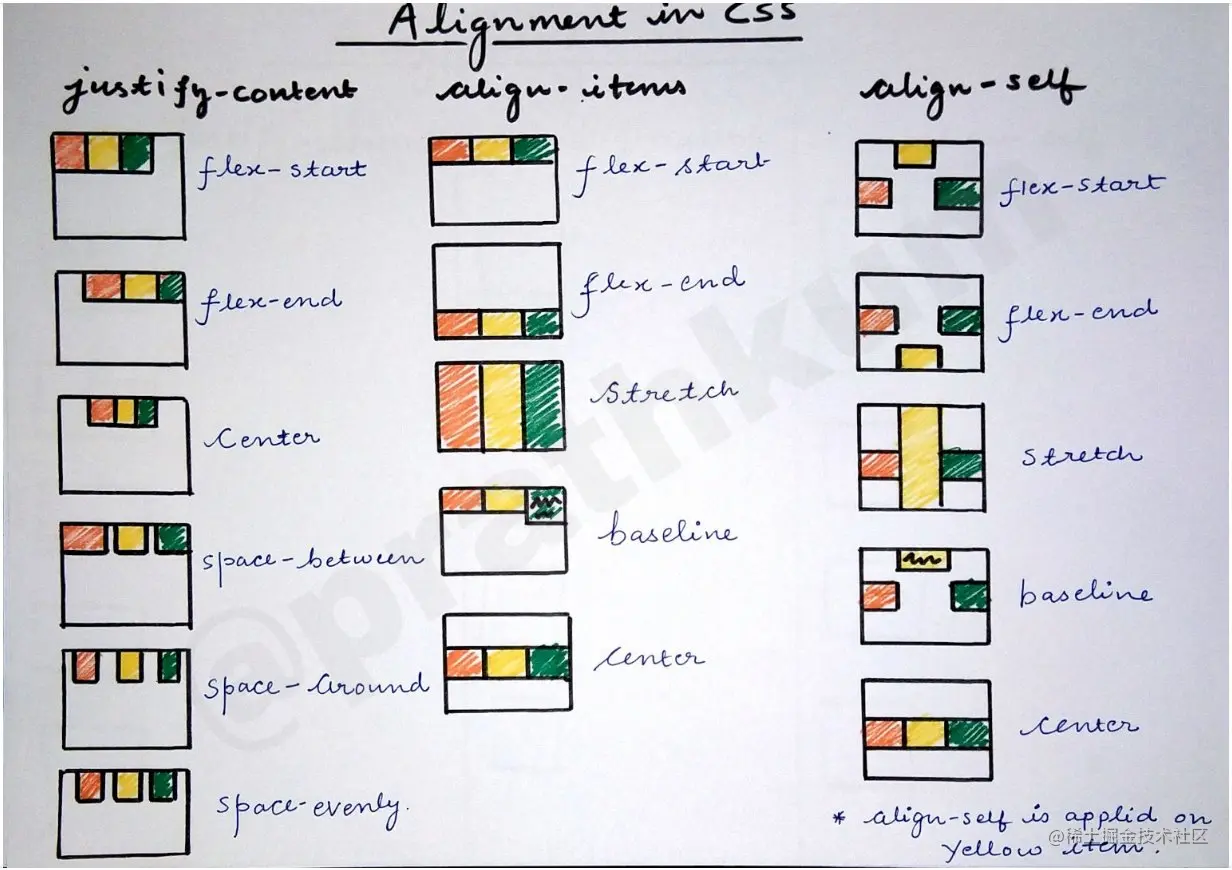 Alignment in CSS
justify-content
flex-start
flex-end
Center
space-between
space-Around
space-evenly.
align-items
flex-start
flex-end
Stretch
baseline
Center
align-self
flex-start
flex-end
Stretch
baseline
Center
* align-self is applid on
Yellow item.
@prathkum
@稀土掘金技术社区